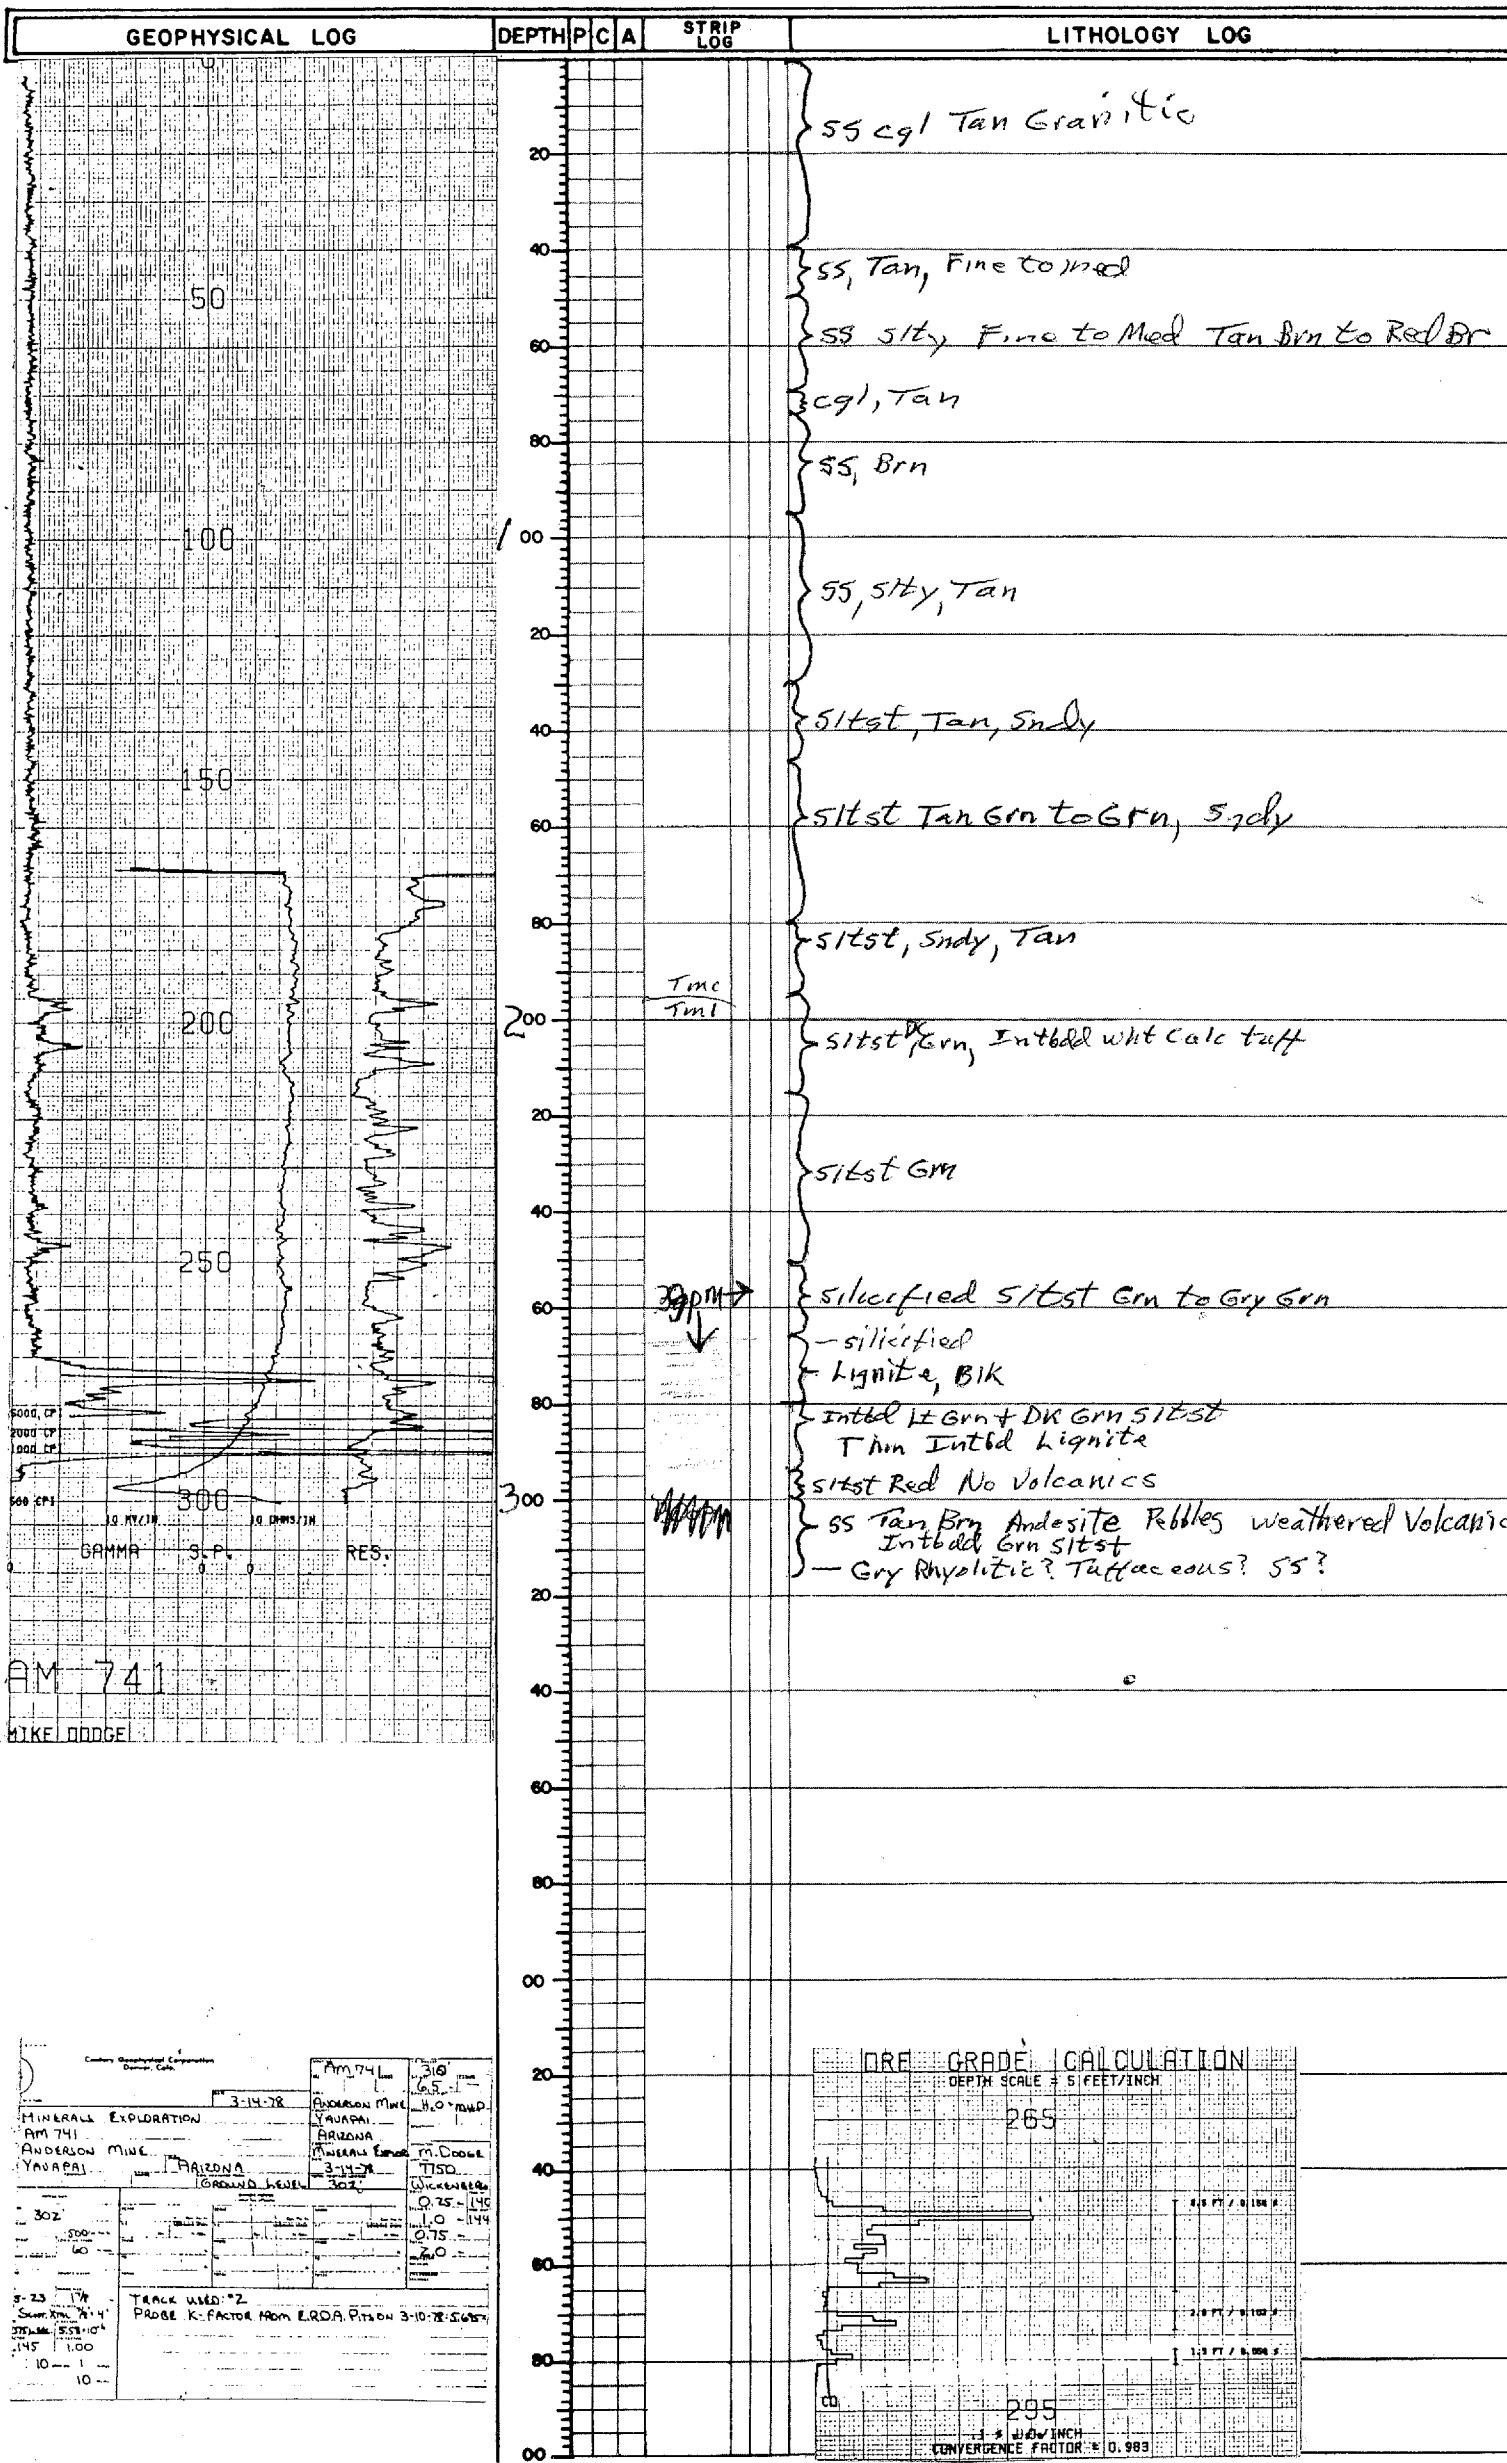 GEOPHYSICAL LOG
DEPTH P C A
STRIP LOG
LITHOLOGY LOG
0
50
100
150
200
250
300
5000 CP
2000 CP
1000 CP
500 CPS
10 MV/IN
10 OHMS/IN
GAMMA S.P. RES.
0 0 0
AM 741
MIKE DODGE
20
40
60
80
100
20
40
60
80
200
20
40
60
80
300
20
40
60
80
00
20
40
60
80
00
Tmc
Tml
3gpm →
SS cgl Tan Granitic
SS, Tan, Fine to med
SS slty Fine to Med Tan Brn to Red Br
cgl, Tan
SS, Brn
SS, slty, Tan
Sltst, Tan, Sndy
Sltst Tan Grn to Grn, Sndy
Sltst, Sndy, Tan
Sltst DK Grn, Intbdd wht Calc tuff
Sltst Grn
Silicified Sltst Grn to Gry Grn
- silicified
- Lignite, Blk
Intbd Lt Grn + DK Grn Sltst
Thin Intbd Lignite
Sltst Red No Volcanics
SS Tan Brn Andesite Pebbles weathered Volcanic
Intbdd Grn Sltst
- Gry Rhyolitic? Tuffaceous? SS?
Century Geophysical Corporation
Denver, Colo.
3-14-78
MINERALS EXPLORATION
AM 741
ANDERSON MINE
YAVAPAI ARIZONA
GROUND LEVEL
302
500
60
AM 741 310
6.5
ANDERSON MINE H2O-MUD
YAVAPAI
ARIZONA
MINERALS EXPLOR M. DODGE
3-14-78 T750
302 WICKENBERG
0.75 - 140
1.0 - 144
0.75
2.0
TRACK USED: #2
PROBE K-FACTOR FROM E.R.D.A. PITS ON 3-10-78
.145 1.00
10 1
10
ORE GRADE CALCULATION
DEPTH SCALE = 5 FEET/INCH
265
295
CONVERGENCE FACTOR = 0.983